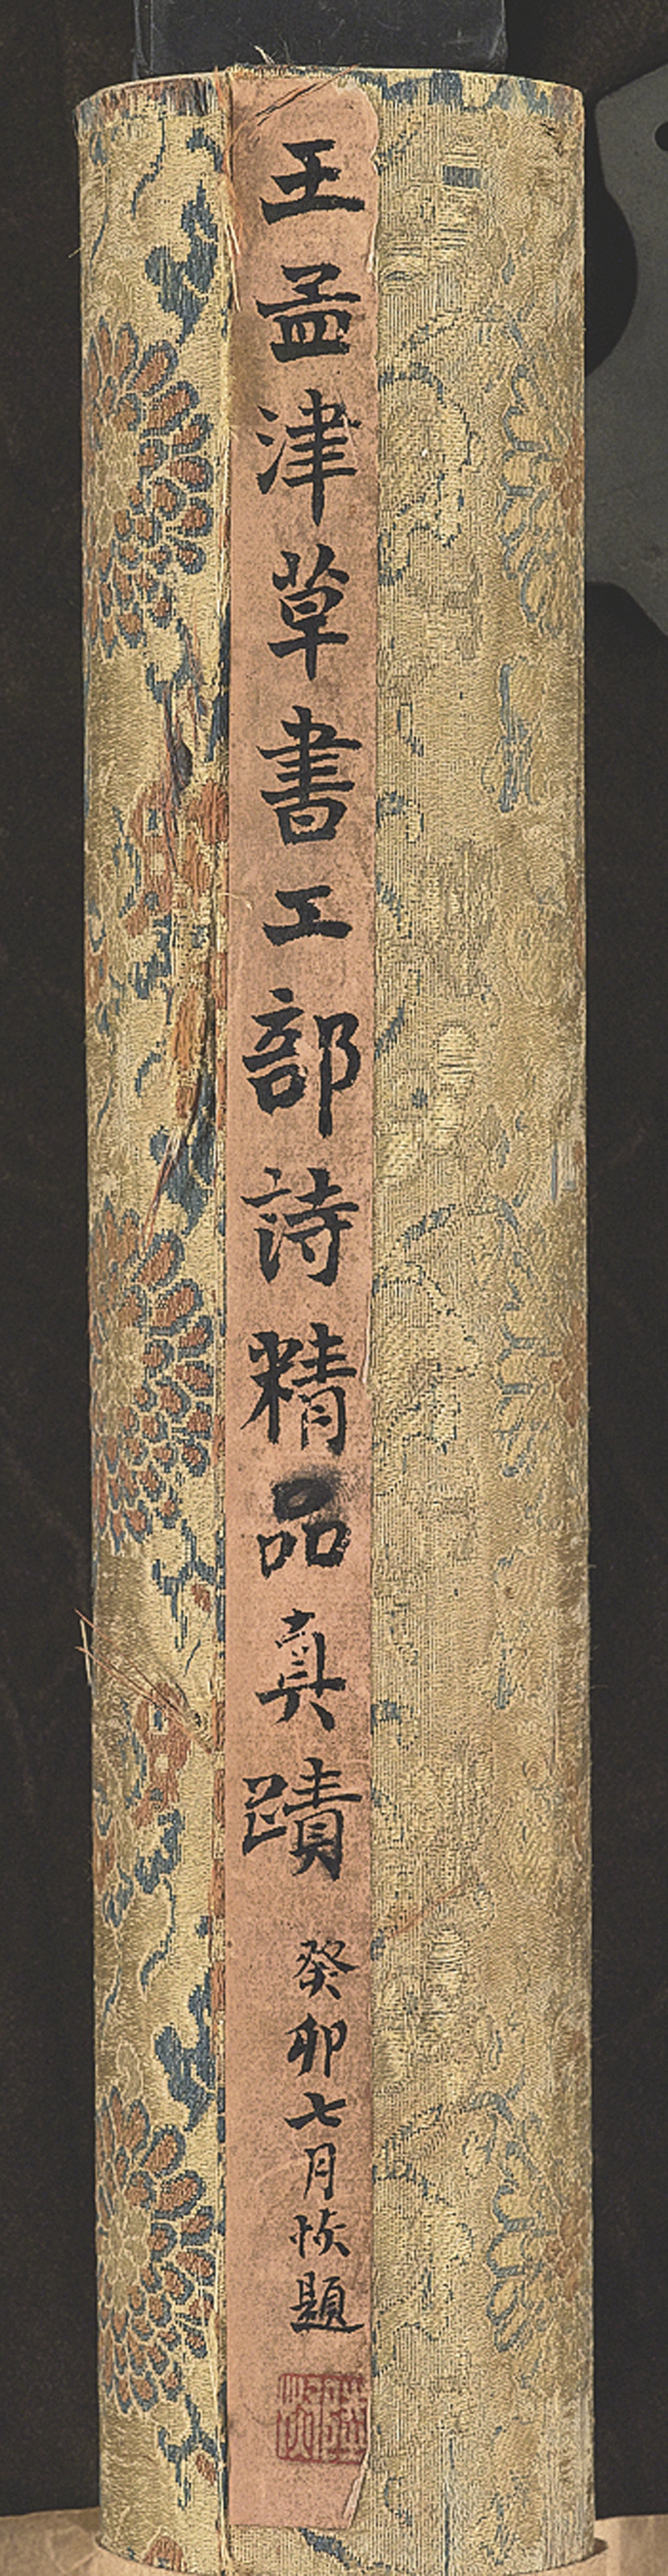 王孟津草書工部詩精品真蹟
癸卯七月恢題